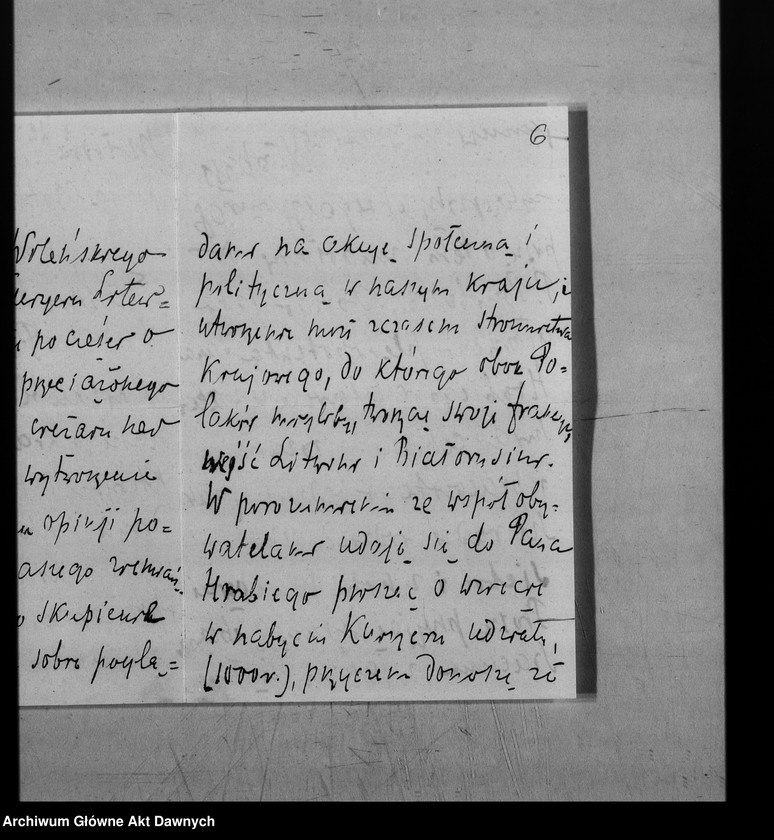 6
Wileńskiego
Kuryera Litew=
i pocieśer o
przeciążonego
ciężaru nad
wytworzenie
opinji po=
aszego ziemiań=
o skupienie
sobą poglą=
dami na akcyę społeczną i
polityczną w naszym kraju, i
utworzenia może zczasem stronnictwa
Krajowego, do którego obok Po=
laków mogliby, tworząc swoje frakcye,
wejść Litwini i Białorusini.
W porozumieniu ze współoby=
watelami udaję się do Pana
Hrabiego prosząc o wzięcie
w nabyciu Kuryera udziału,
(1000r.), przyczem donoszę że
Archiwum Główne Akt Dawnych